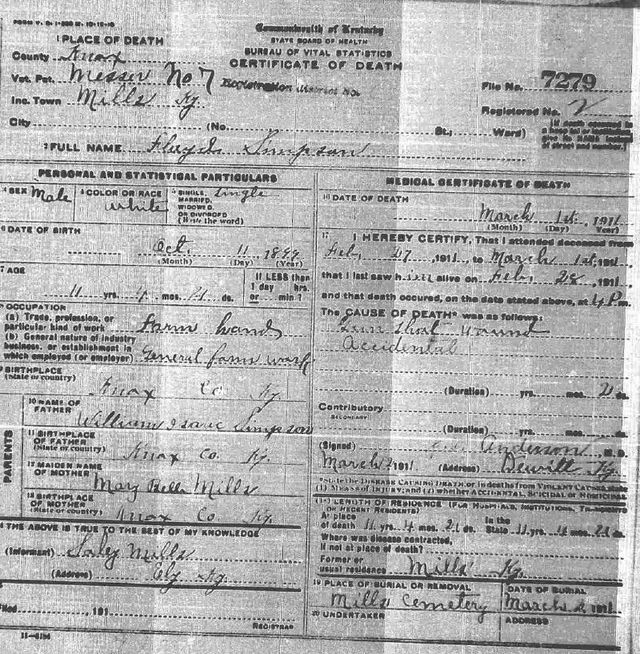 FORM V. S. 1-
Commonwealth of Kentucky
STATE BOARD OF HEALTH
BUREAU OF VITAL STATISTICS
CERTIFICATE OF DEATH
1 PLACE OF DEATH
County Knox
Vot. Pct. Messer No 7
Registration District No.
File No. 7279
Inc. Town Mills Ky.
Registered No. 2
City (No. St.; Ward)
2 FULL NAME Floyd Simpson
PERSONAL AND STATISTICAL PARTICULARS
3 SEX Male
4 COLOR OR RACE White
5 SINGLE, MARRIED, WIDOWED, OR DIVORCED (Write the word) Single
6 DATE OF BIRTH
Oct. 11 1899
(Month) (Day) (Year)
7 AGE
11 yrs. 4 mos. ds.
If LESS than 1 day hrs. or min ?
OCCUPATION
(a) Trade, profession, or particular kind of work Farm hand
(b) General nature of industry business, or establishment in which employed (or employer) General farm work
9 BIRTHPLACE
(State or country)
Knox Co Ky.
PARENTS
10 NAME OF FATHER William Isaac Simpson
11 BIRTHPLACE OF FATHER (State or country) Knox Co. Ky.
12 MAIDEN NAME OF MOTHER Mary Bell Mills
13 BIRTHPLACE OF MOTHER (State or country) Knox Co Ky.
THE ABOVE IS TRUE TO THE BEST OF MY KNOWLEDGE
(Informant) Mills
(Address) Ely Ky.
Filed 191
REGISTRAR
MEDICAL CERTIFICATE OF DEATH
16 DATE OF DEATH
March 1st 1911
(Month) (Day) (Year)
17 I HEREBY CERTIFY, That I attended deceased from
Feb, 27, 1911, to March 1st, 1911
that I last saw him alive on Feb, 28, 1911,
and that death occured, on the date stated above, at 4 P.m.
The CAUSE OF DEATH* was as follows:
Gun Shot wound
Accidental
(Duration) yrs. mos. ds.
Contributory
SECONDARY
(Duration) yrs. mos. ds.
(Signed) Anderson M. D.
March 1911 (Address) Dewitt Ky.
*State the DISEASE CAUSING DEATH, or in deaths from VIOLENT CAUSES,
MEANS OF INJURY; and (2) whether ACCIDENTAL, SUICIDAL or HOMICIDAL
LENGTH OF RESIDENCE (FOR HOSPITALS, INSTITUTIONS,
OR RECENT RESIDENTS)
At place of death 11 yrs. 4 mos. 21 ds. In the State 11 yrs. 4 mos. 21 ds.
Where was disease contracted,
if not at place of death?
Former or
usual residence Mills Ky.
19 PLACE OF BURIAL OR REMOVAL
Mills Cemetery
DATE OF BURIAL
March 2, 1911
20 UNDERTAKER
ADDRESS